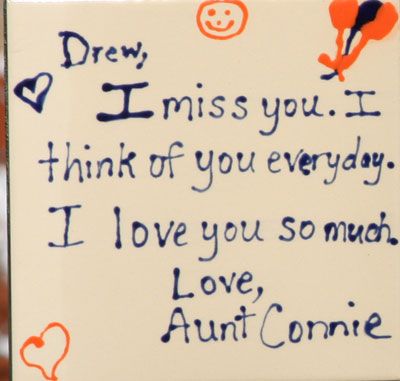 Drew,
I miss you. I
think of you everyday.
I love you so much.
Love,
Aunt Connie